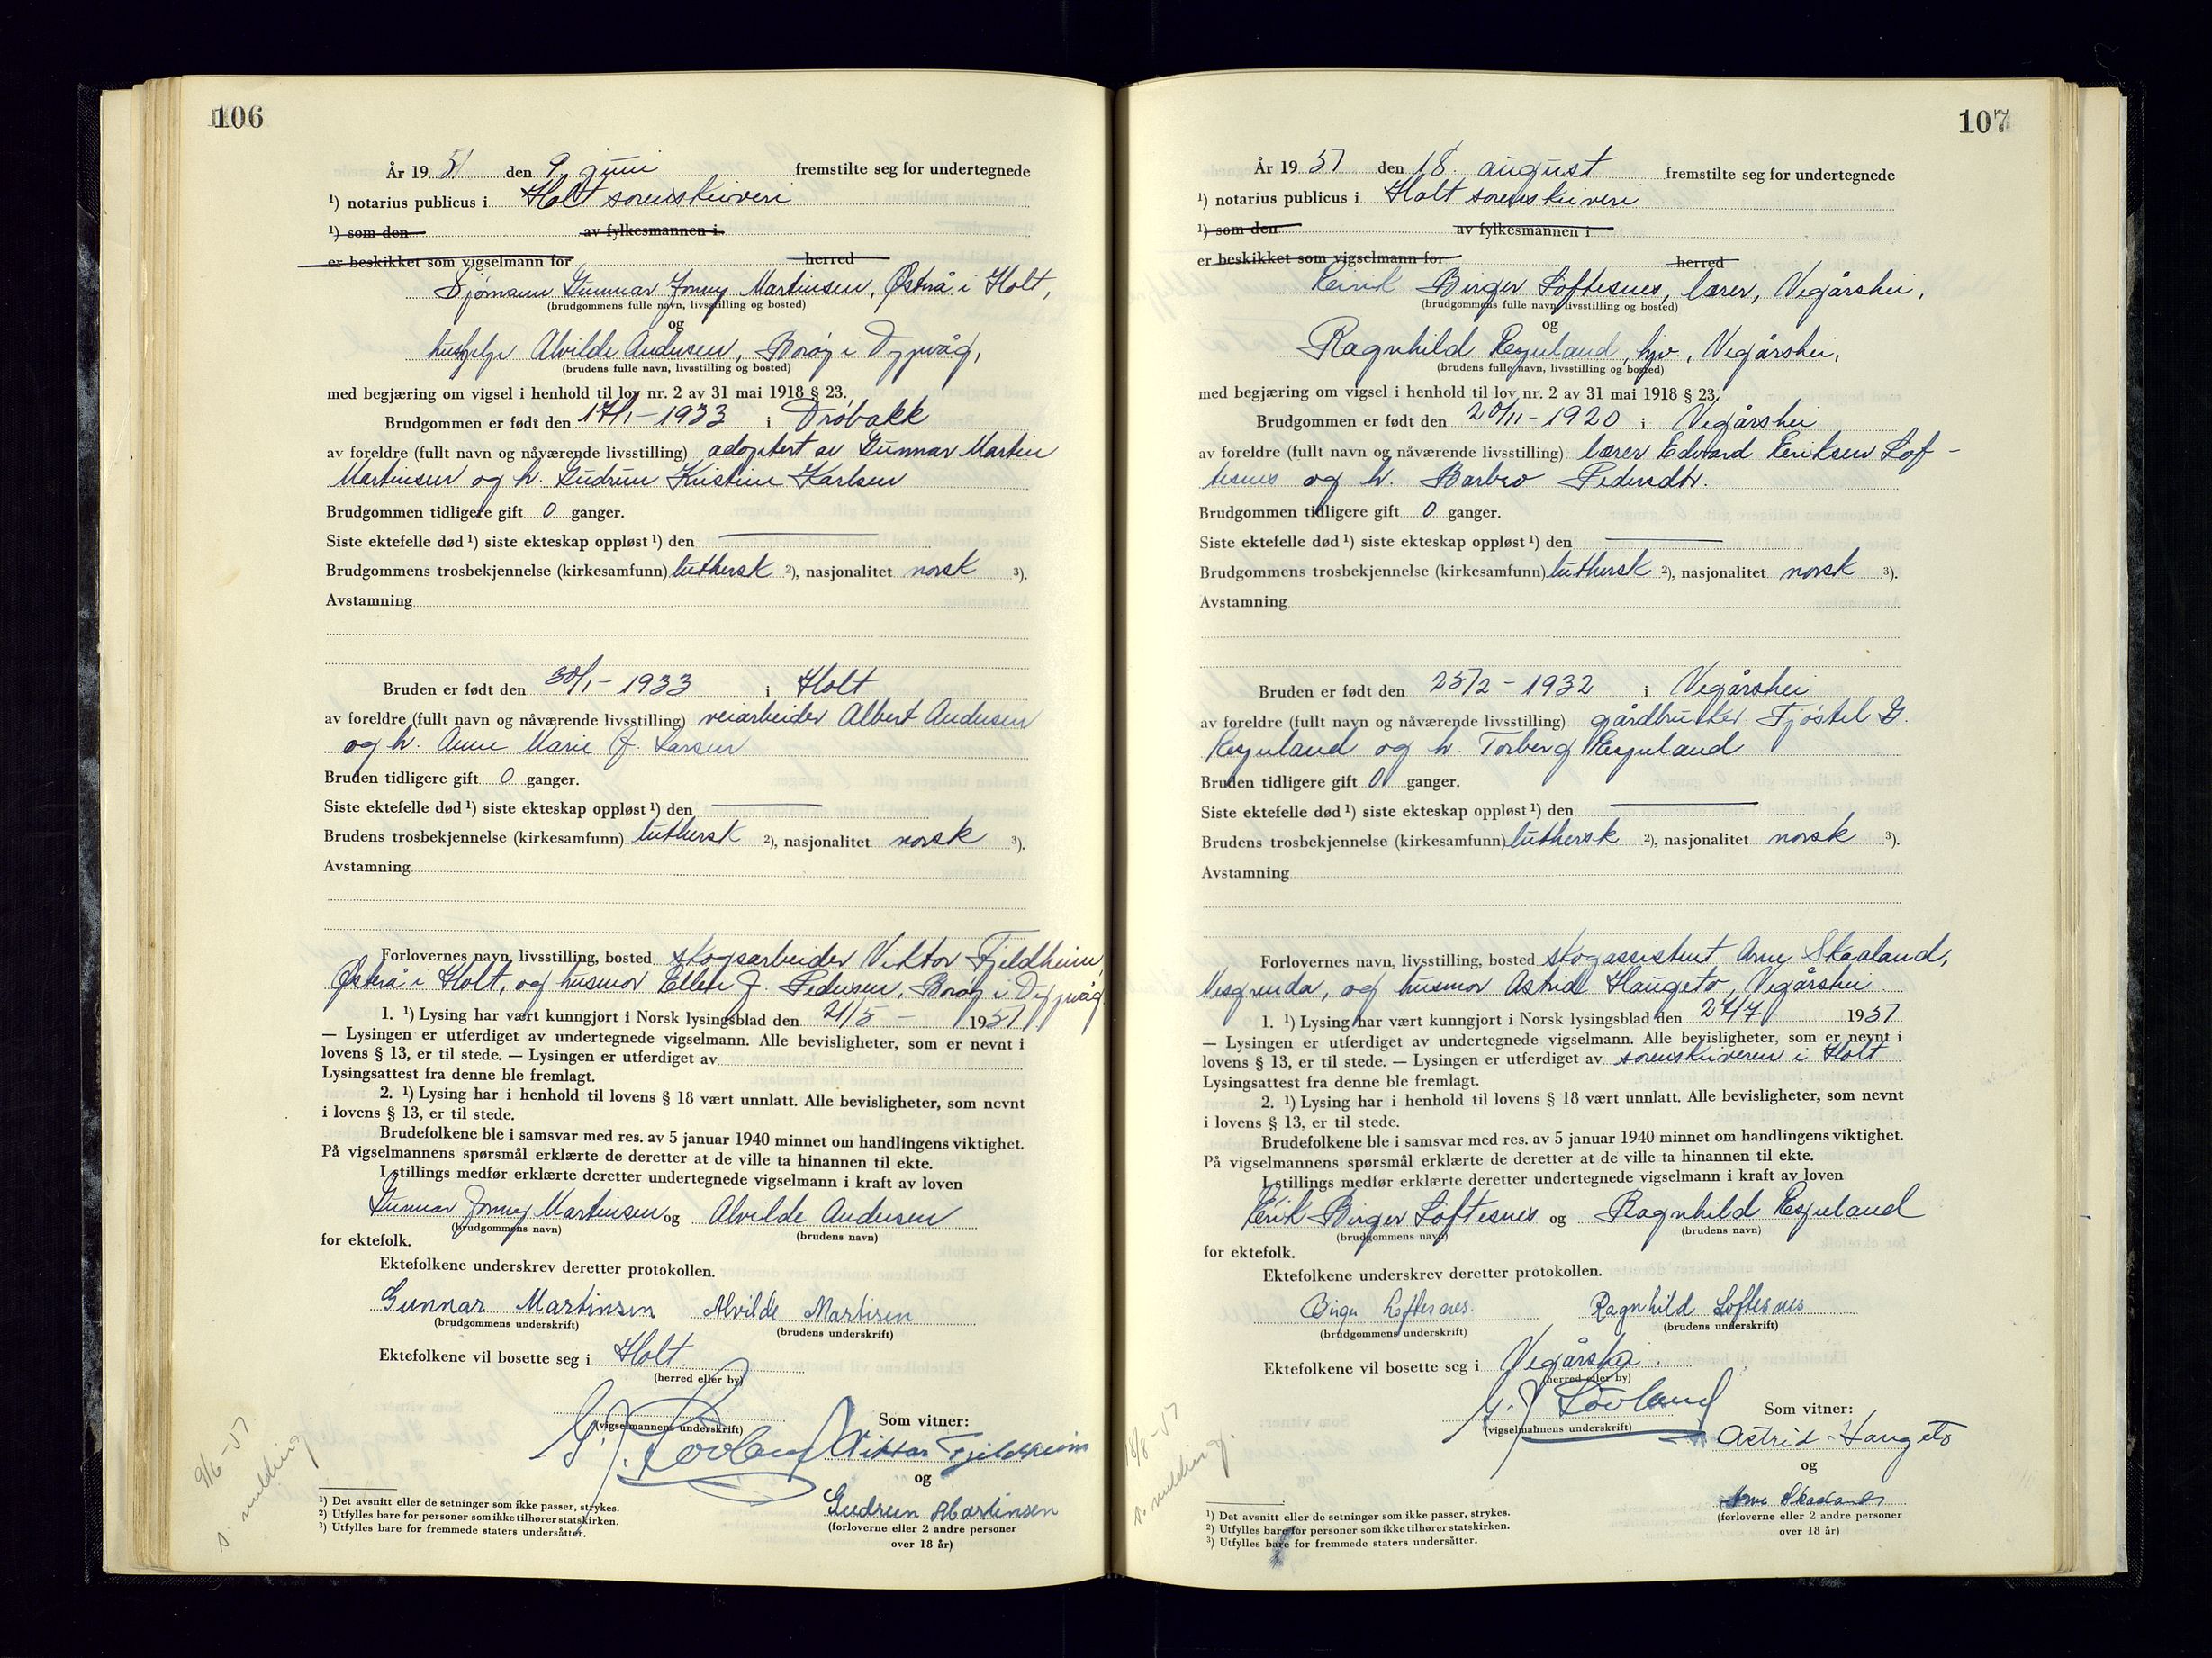 106
År 19 51 den 9. juni fremstilte seg for undertegnede
¹) notarius publicus i Holt sorenskriveri
¹) som den av fylkesmannen i
er beskikket som vigselmann for herred
Sjømann Gunnar Jonny Martinsen, Østerå i Holt,
(brudgommens fulle navn, livsstilling og bosted)
og
hushjelp Alvilde Andersen, Borøy i Dypvåg,
(brudens fulle navn, livsstilling og bosted)
med begjæring om vigsel i henhold til lov nr. 2 av 31 mai 1918 § 23.
Brudgommen er født den 17/1-1933 i Drøbakk
av foreldre (fullt navn og nåværende livsstilling) adoptert av Gunnar Martin
Martinsen og h. Gudrun Kristine Karlsen
Brudgommen tidligere gift 0 ganger.
Siste ektefelle død ¹) siste ekteskap oppløst ¹) den
Brudgommens trosbekjennelse (kirkesamfunn) luthersk ²), nasjonalitet norsk ³).
Avstamning
Bruden er født den 30/1-1933 i Holt
av foreldre (fullt navn og nåværende livsstilling) veiarbeider Albert Andersen
og h. Anne Marie J. Larsen
Bruden tidligere gift 0 ganger.
Siste ektefelle død ¹) siste ekteskap oppløst ¹) den
Brudens trosbekjennelse (kirkesamfunn) luthersk ²), nasjonalitet norsk ³).
Avstamning
Forlovernes navn, livsstilling, bosted skogsarbeider Viktor Fjeldheim,
Østerå i Holt, og husmor Ellen J. Pedersen, Borøy i Dypvåg
1. ¹) Lysing har vært kunngjort i Norsk lysingsblad den 21/5- 1951
— Lysingen er utferdiget av undertegnede vigselmann. Alle bevisligheter, som er nevnt i
lovens § 13, er til stede. — Lysingen er utferdiget av
Lysingsattest fra denne ble fremlagt.
2. ¹) Lysing har i henhold til lovens § 18 vært unnlatt. Alle bevisligheter, som nevnt
i lovens § 13, er til stede.
Brudefolkene ble i samsvar med res. av 5 januar 1940 minnet om handlingens viktighet.
På vigselmannens spørsmål erklærte de deretter at de ville ta hinannen til ekte.
I stillings medfør erklærte deretter undertegnede vigselmann i kraft av loven
Gunnar Jonny Martinsen og Alvilde Andersen
(brudgommens navn) (brudens navn)
for ektefolk.
Ektefolkene underskrev deretter protokollen.
Gunnar Martinsen Alvilde Martisen
(brudgommens underskrift) (brudens underskrift)
Ektefolkene vil bosette seg i Holt.
(herred eller by)
Som vitner:
(vigselmannens underskrift)
G. J. Løvland Viktor Fjeldheim
og
Gudrun Martinsen
(forloverne eller 2 andre personer
over 18 år)
9/6-51
s. melding
¹) Det avsnitt eller de setninger som ikke passer, strykes.
²) Utfylles bare for personer som ikke tilhører statskirken.
³) Utfylles bare for fremmede staters undersåtter.
107
År 19 51 den 18. august fremstilte seg for undertegnede
¹) notarius publicus i Holt sorenskriveri
¹) som den av fylkesmannen i
er beskikket som vigselmann for herred
Eirik Birger Loftesnes, lærer, Vegårshei,
(brudgommens fulle navn, livsstilling og bosted)
og
Ragnhild Espeland, hjv., Vegårshei,
(brudens fulle navn, livsstilling og bosted)
med begjæring om vigsel i henhold til lov nr. 2 av 31 mai 1918 § 23.
Brudgommen er født den 20/11-1920 i Vegårshei
av foreldre (fullt navn og nåværende livsstilling) lærer Edvard Eriksen Lof-
tesnes og h. Barbro Pedersdtr.
Brudgommen tidligere gift 0 ganger.
Siste ektefelle død ¹) siste ekteskap oppløst ¹) den
Brudgommens trosbekjennelse (kirkesamfunn) luthersk ²), nasjonalitet norsk ³).
Avstamning
Bruden er født den 25/2-1932 i Vegårshei
av foreldre (fullt navn og nåværende livsstilling) gårdbruker Tjøstel G.
Espeland og h. Torberg Espeland
Bruden tidligere gift 0 ganger.
Siste ektefelle død ¹) siste ekteskap oppløst ¹) den
Brudens trosbekjennelse (kirkesamfunn) luthersk ²), nasjonalitet norsk ³).
Avstamning
Forlovernes navn, livsstilling, bosted skogassistent Arne Skaaland,
Vesgrenda, og husmor Astrid Haugeto, Vegårshei.
1. ¹) Lysing har vært kunngjort i Norsk lysingsblad den 24/7 1951
— Lysingen er utferdiget av undertegnede vigselmann. Alle bevisligheter, som er nevnt i
lovens § 13, er til stede. — Lysingen er utferdiget av sorenskriveren i Holt
Lysingsattest fra denne ble fremlagt.
2. ¹) Lysing har i henhold til lovens § 18 vært unnlatt. Alle bevisligheter, som nevnt
i lovens § 13, er til stede.
Brudefolkene ble i samsvar med res. av 5 januar 1940 minnet om handlingens viktighet.
På vigselmannens spørsmål erklærte de deretter at de ville ta hinannen til ekte.
I stillings medfør erklærte deretter undertegnede vigselmann i kraft av loven
Eirik Birger Loftesnes og Ragnhild Espeland
(brudgommens navn) (brudens navn)
for ektefolk.
Ektefolkene underskrev deretter protokollen.
Birger Loftesnes. Ragnhild Loftesnes
(brudgommens underskrift) (brudens underskrift)
Ektefolkene vil bosette seg i Vegårshei.
(herred eller by)
G. J. Løvland
Som vitner:
(vigselmannens underskrift)
Astrid Haugeto
og
Arne Skaaland
(forloverne eller 2 andre personer
over 18 år)
18/8-51
s. melding.
¹) Det avsnitt eller de setninger som ikke passer, strykes.
²) Utfylles bare for personer som ikke tilhører statskirken.
³) Utfylles bare for fremmede staters undersåtter.